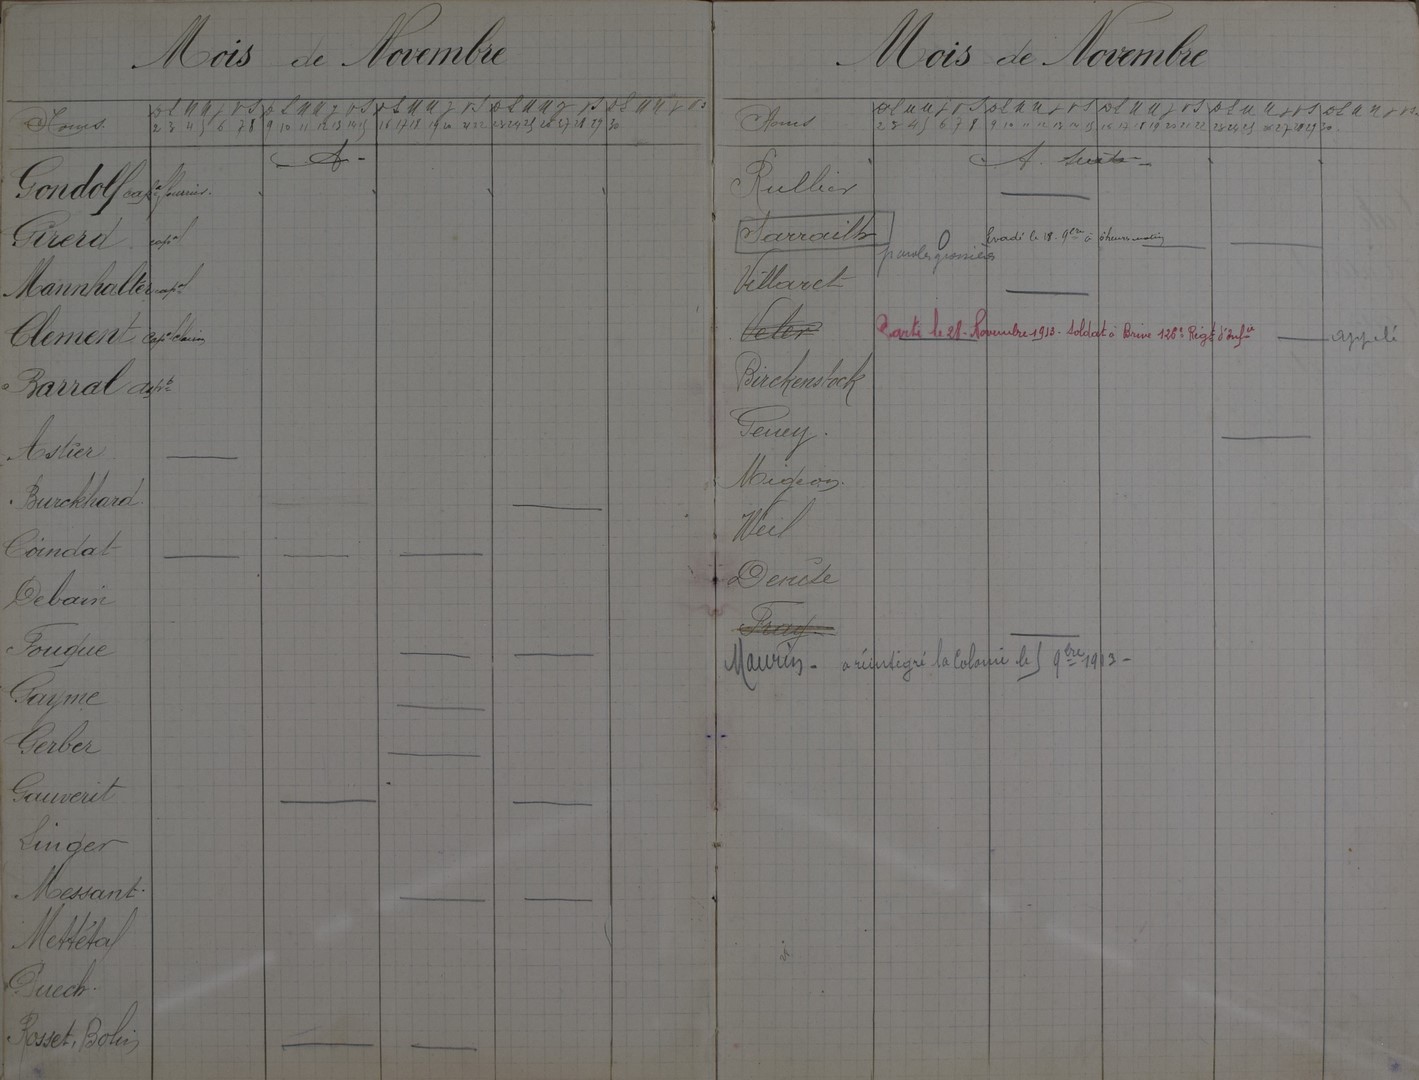 Mois de Novembre
Noms
D L M M J V S D L M M J V S D L M M J V S D L M M J V S D L M M J V S
2 3 4 5 6 7 8 9 10 11 12 13 14 15 16 17 18 19 20 21 22 23 24 25 26 27 28 29 30
A -
Gondolf cap.al fourrier.
Girerd cap.al
Mannhalter cap.al
Clement cap.al clairon
Barral
Astier
Burckhard
Coindat
Debain
Fouque
Gayme
Gerber
Gauverit
Linger
Messant
Mettétal
Puech
Rosset, Bolin
Mois de Novembre
Noms
D L M M J V S D L M M J V S D L M M J V S D L M M J V S D L M M J V S
2 3 4 5 6 7 8 9 10 11 12 13 14 15 16 17 18 19 20 21 22 23 24 25 26 27 28 29 30
A. suite -
Rullier
Sarrailh paroles grossières 0 Evadé le 18. 9bre à heures matin
Villaret
Veler Parti le 21. Novembre 1913. soldat à Brive 126e Régt d'Infie appelé
Birckenstock
Geney.
Migeon.
Weil
Denise
Fray
Maurin - a réintégré la Colonie le 5 9bre 1913 -